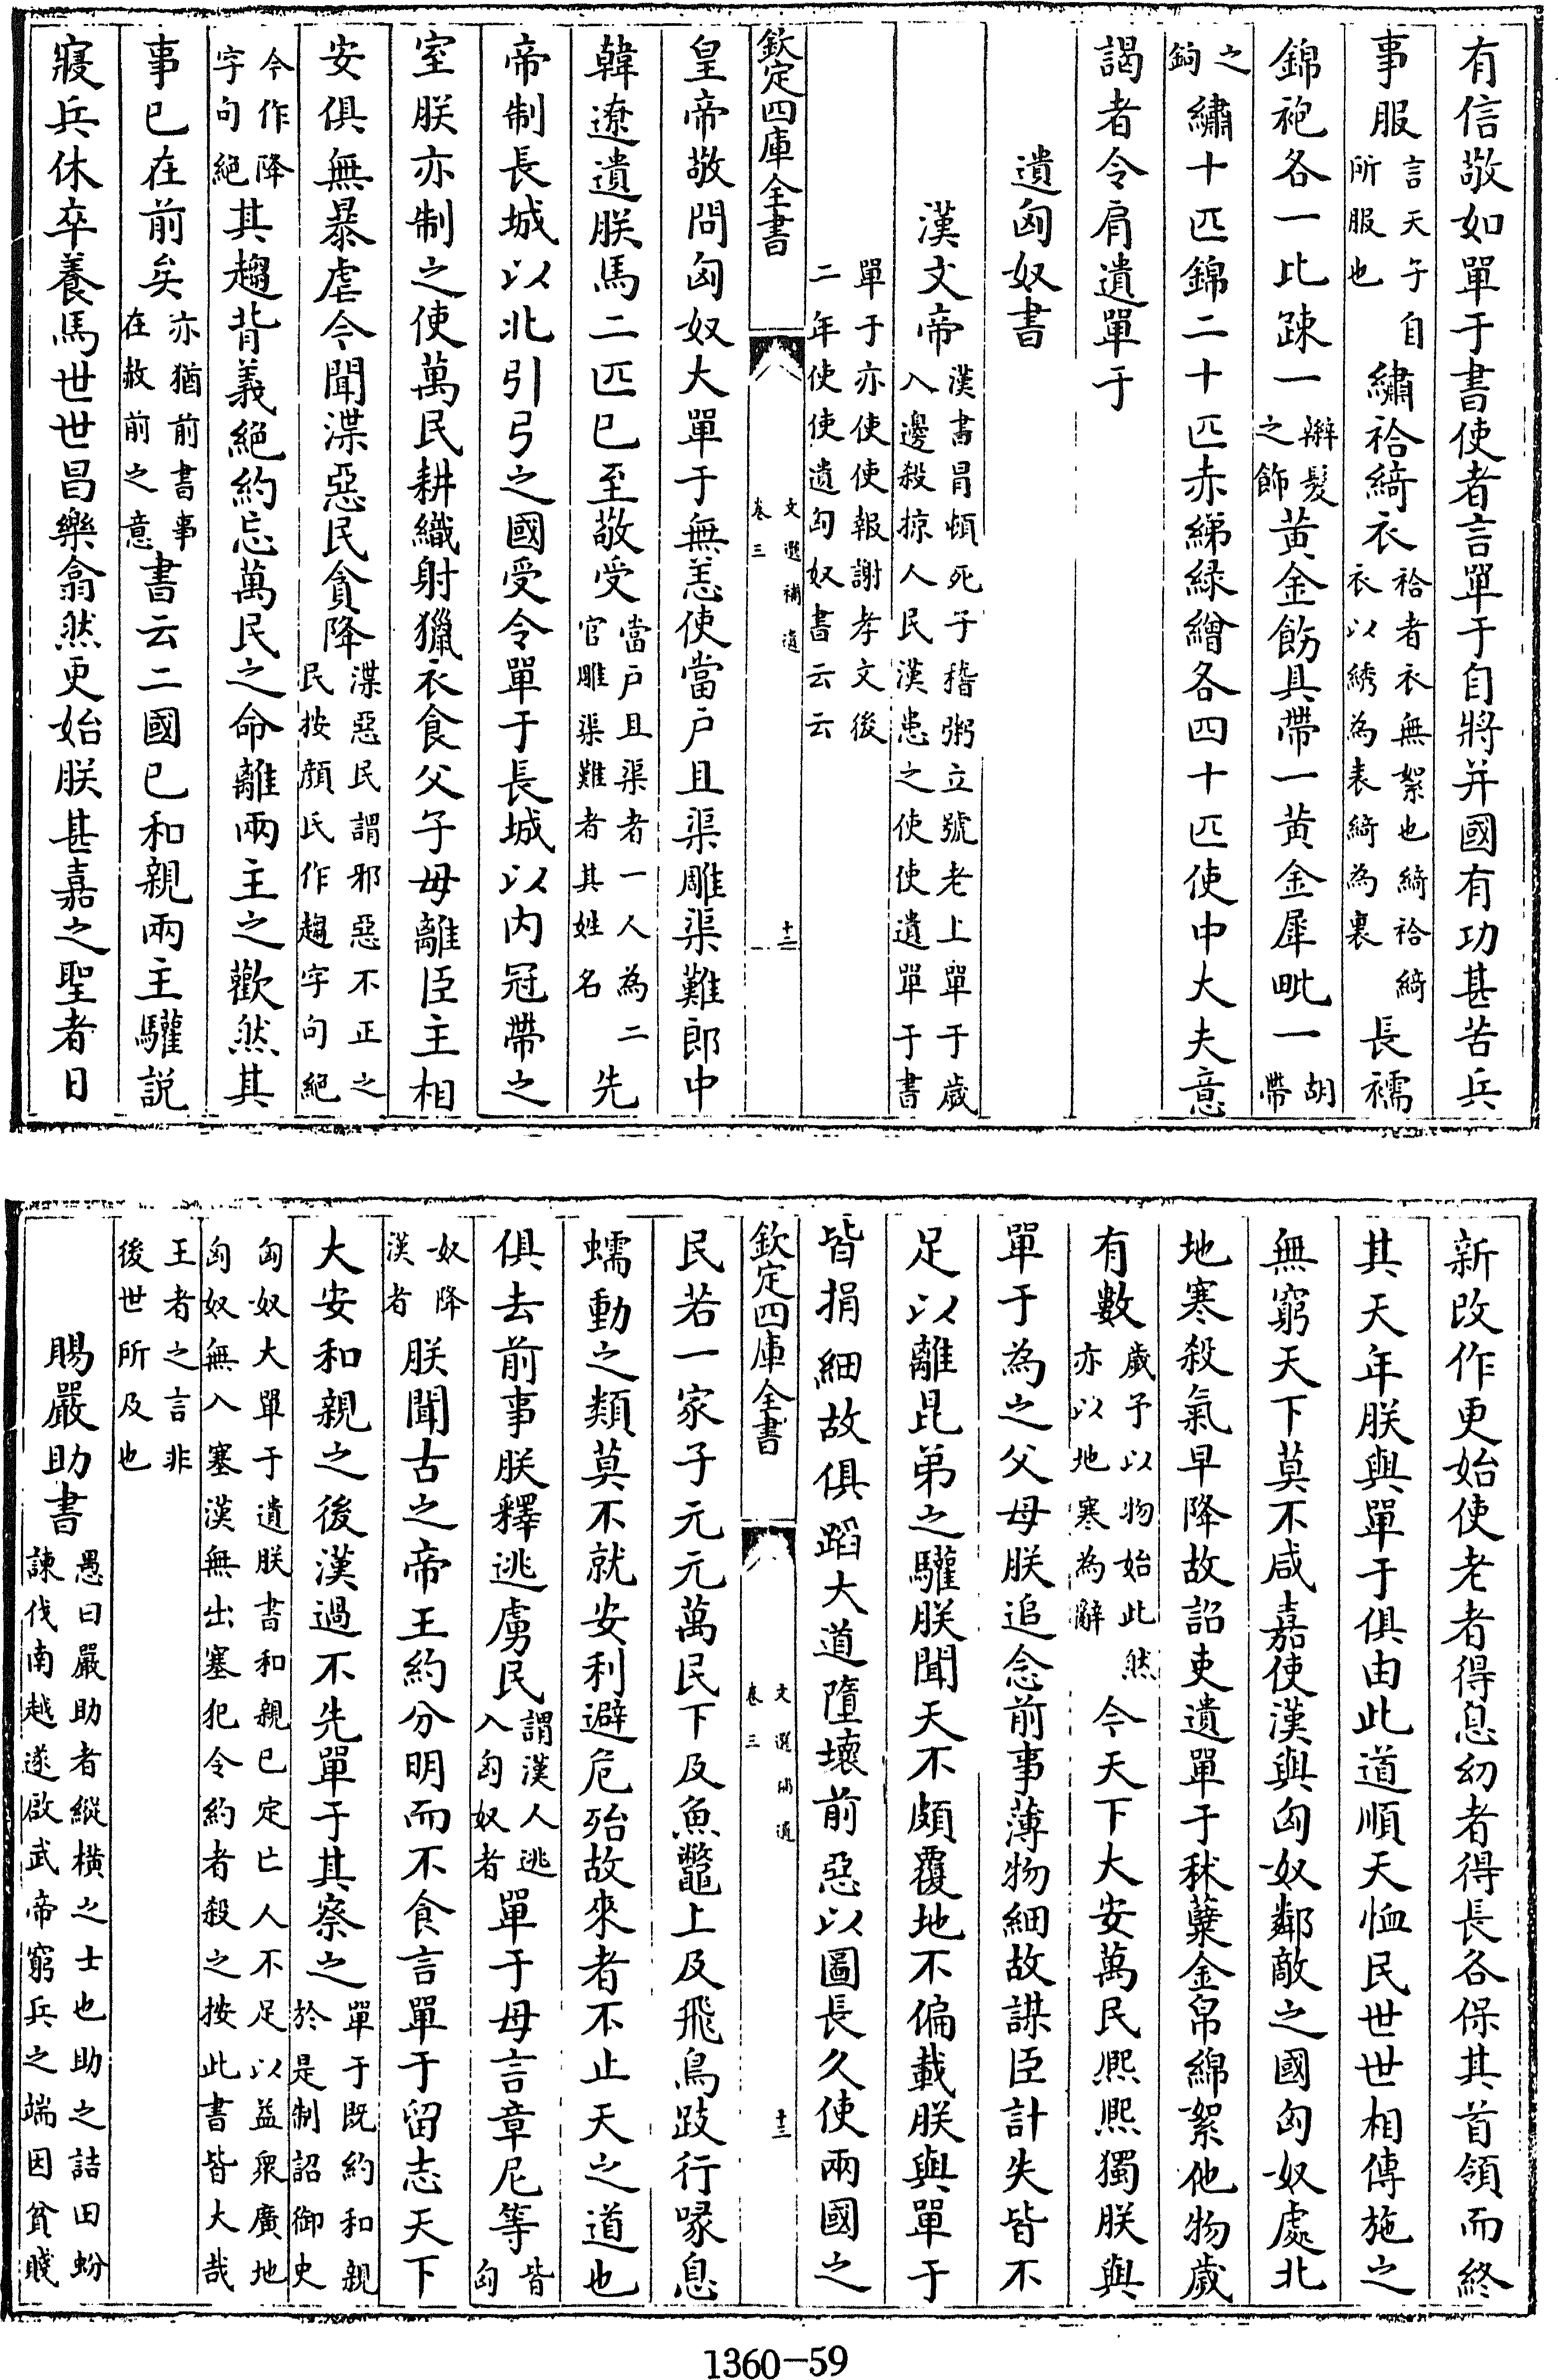 有信敬如單于書使者言單于自將并國有功甚苦兵
事服言天子自所服也繡袷綺衣袷者衣無絮也綺袷綺衣以綉為表綺為裏長襦
錦袍各一比踈一辮髮之飾黃金飭具帶一黃金犀毗一胡帶
之鉤繡十匹錦二十匹赤綈緑繒各四十匹使中大夫意
謁者令肩遺單于
遺匈奴書
漢文帝漢書冒頓死子稽粥立號老上單于歲入邊殺掠人民漢患之使使遺單于書
單于亦使使報謝孝文後二年使使遺匈奴書云云
欽定四庫全書 文選補遺 卷三 十二
皇帝敬問匈奴大單于無恙使當户且渠雕渠難郎中
韓遼遺朕馬二匹已至敬受當户且渠者一人為二官雕渠難者其姓名先
帝制長城以北引弓之國受令單于長城以内冠帶之
室朕亦制之使萬民耕織射獵衣食父子毋離臣主相
安俱無暴虐今聞渫惡民貪降渫惡民謂邪惡不正之民按顔氏作趨字句絶
今作降字句絶其趨背義絶約忘萬民之命離兩主之歡然其
事已在前矣亦猶前書事在赦前之意書云二國已和親兩主驩説
寢兵休卒養馬世世昌樂翕然更始朕甚嘉之聖者日
新改作更始使老者得息幼者得長各保其首領而終
其天年朕與單于俱由此道順天恤民世世相傳施之
無窮天下莫不咸嘉使漢與匈奴鄰敵之國匈奴處北
地寒殺氣早降故詔吏遺單于秫蘖金帛綿絮他物歲
有數歲予以物始此然亦以地寒為辭今天下大安萬民熙熙獨朕與
單于為之父母朕追念前事薄物細故謀臣計失皆不
足以離昆弟之驩朕聞天不頗覆地不偏載朕與單于
皆捐細故俱蹈大道墮壞前惡以圖長久使兩國之
欽定四庫全書 文選補遺 卷三 十三
民若一家子元元萬民下及魚鼈上及飛鳥跂行喙息
蠕動之類莫不就安利避危殆故來者不止天之道也
俱去前事朕釋逃虜民謂漢人逃入匈奴者單于毋言章尼等皆匈
奴降漢者朕聞古之帝王約分明而不食言單于留志天下
大安和親之後漢過不先單于其察之單于既約和親於是制詔御史
匈奴大單于遺朕書和親已定亡人不足以益衆廣地匈奴無入塞漢無出塞犯令約者殺之按此書皆大哉
王者之言非後世所及也
賜嚴助書愚曰嚴助者縱横之士也助之詰田蚡諫伐南越遂啟武帝窮兵之端因貧賤
1360-59